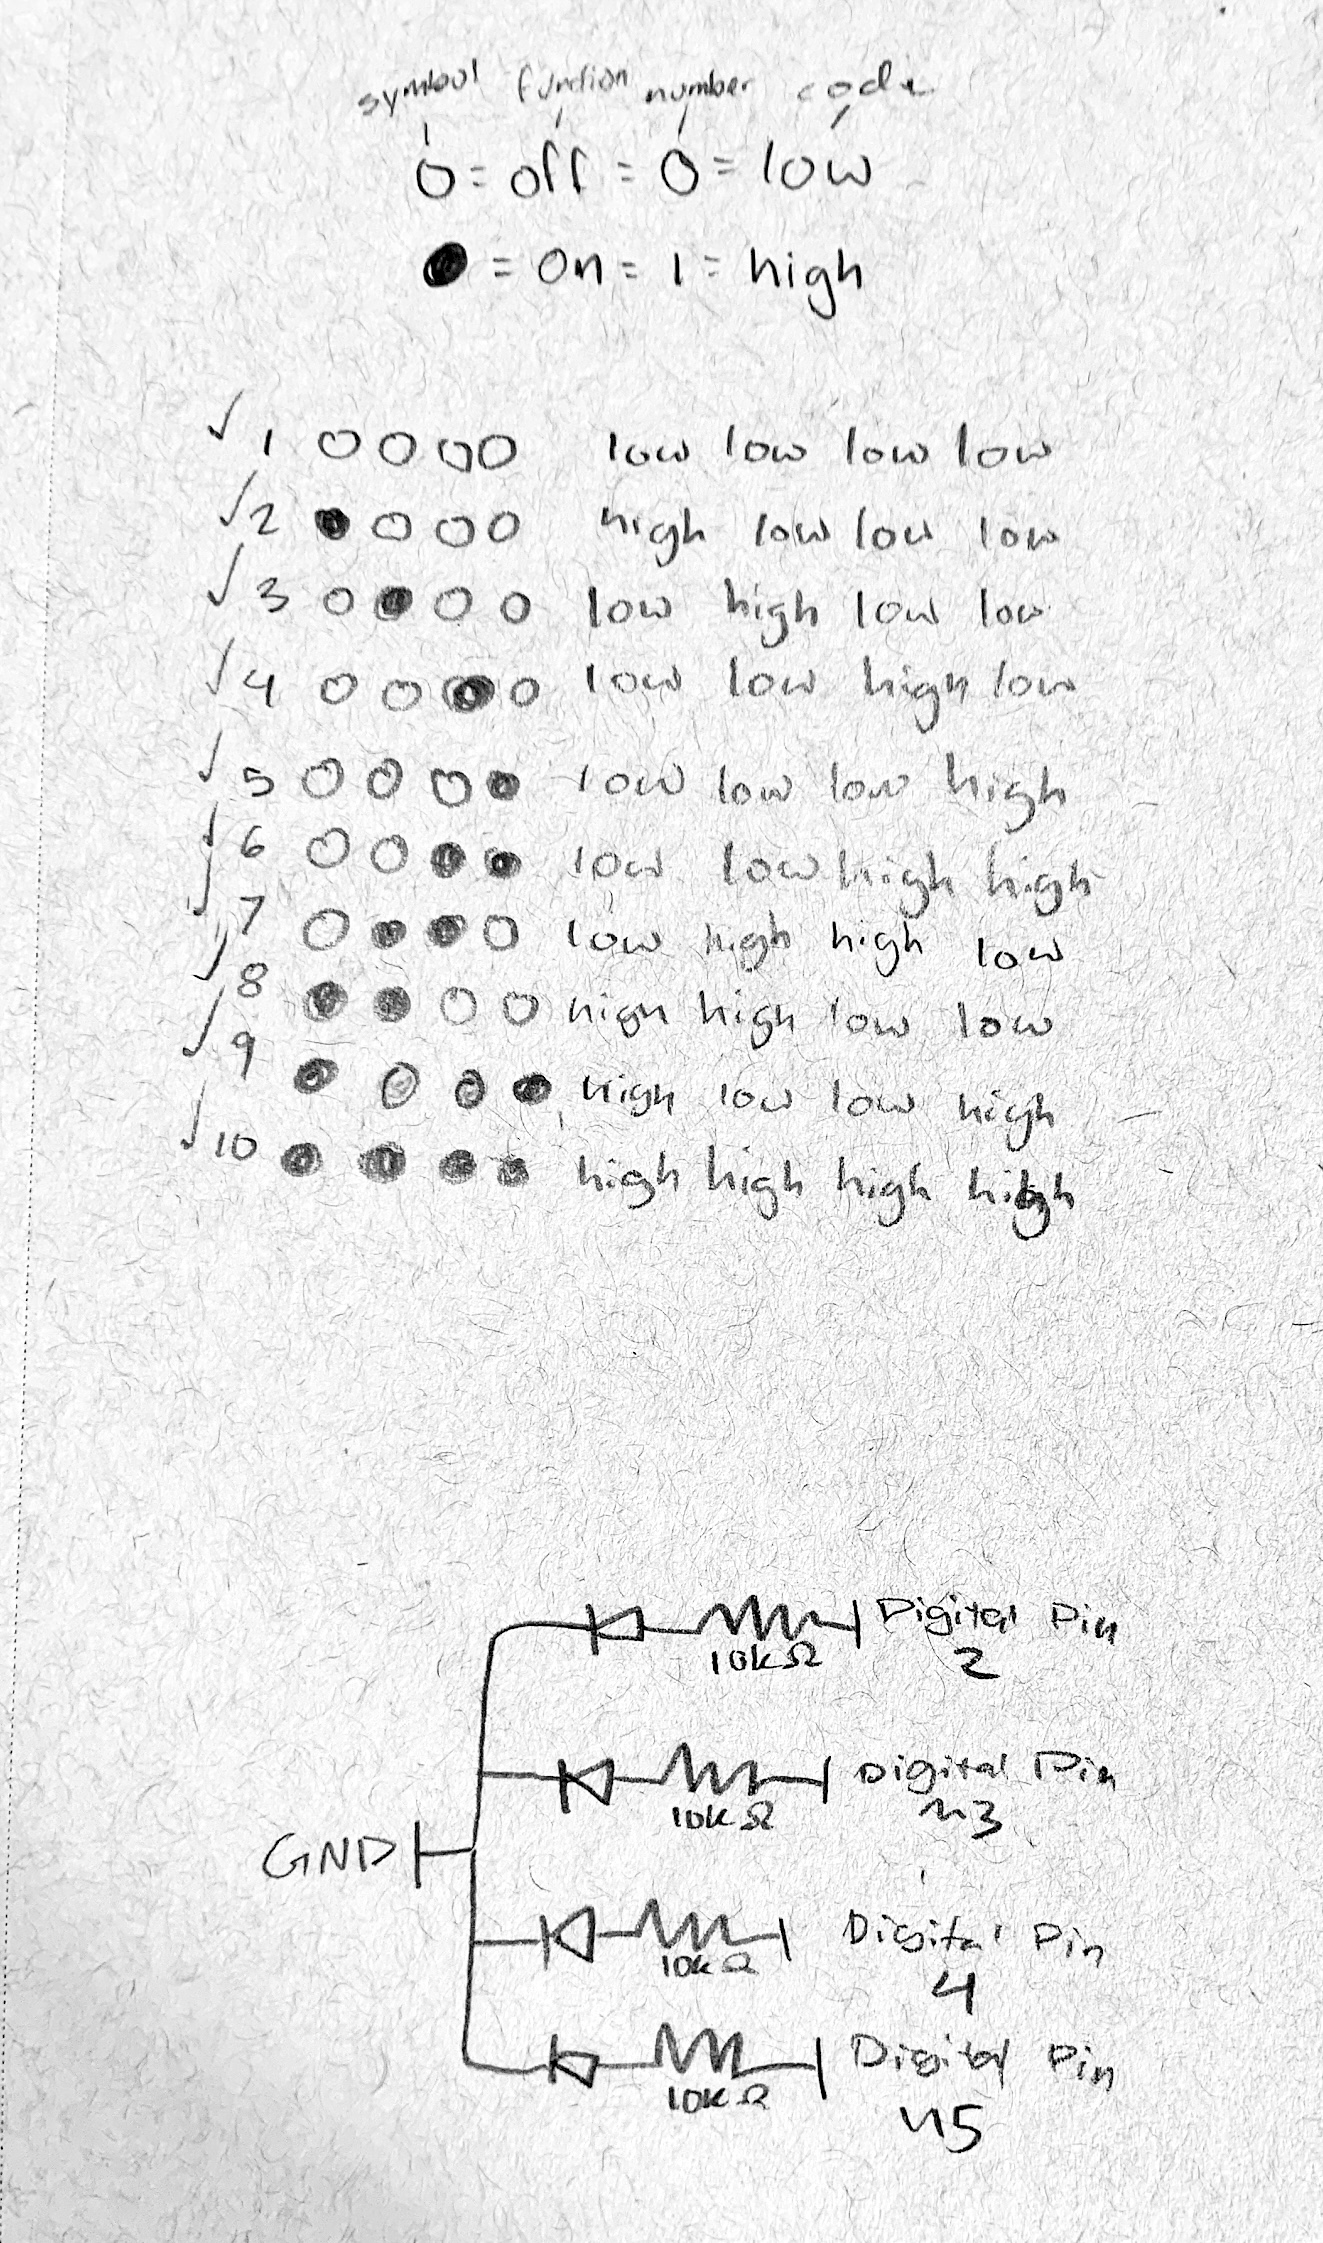 symbol function number code
O = off = 0 = low
● = on = 1 = high
✓ 1 O O O O low low low low
✓ 2 ● O O O high low low low
✓ 3 O ● O O low high low low
✓ 4 O O ● O low low high low
✓ 5 O O O ● low low low high
✓ 6 O O ● ● low low high high
✓ 7 O ● ● O low high high low
✓ 8 ● ● O O high high low low
✓ 9 ● O O ● high low low high
✓ 10 ● ● ● ● high high high high
Digital Pin
10kΩ 2
Digital Pin
10kΩ 3
GND
Digital Pin
10kΩ 4
Digital Pin
10kΩ 5